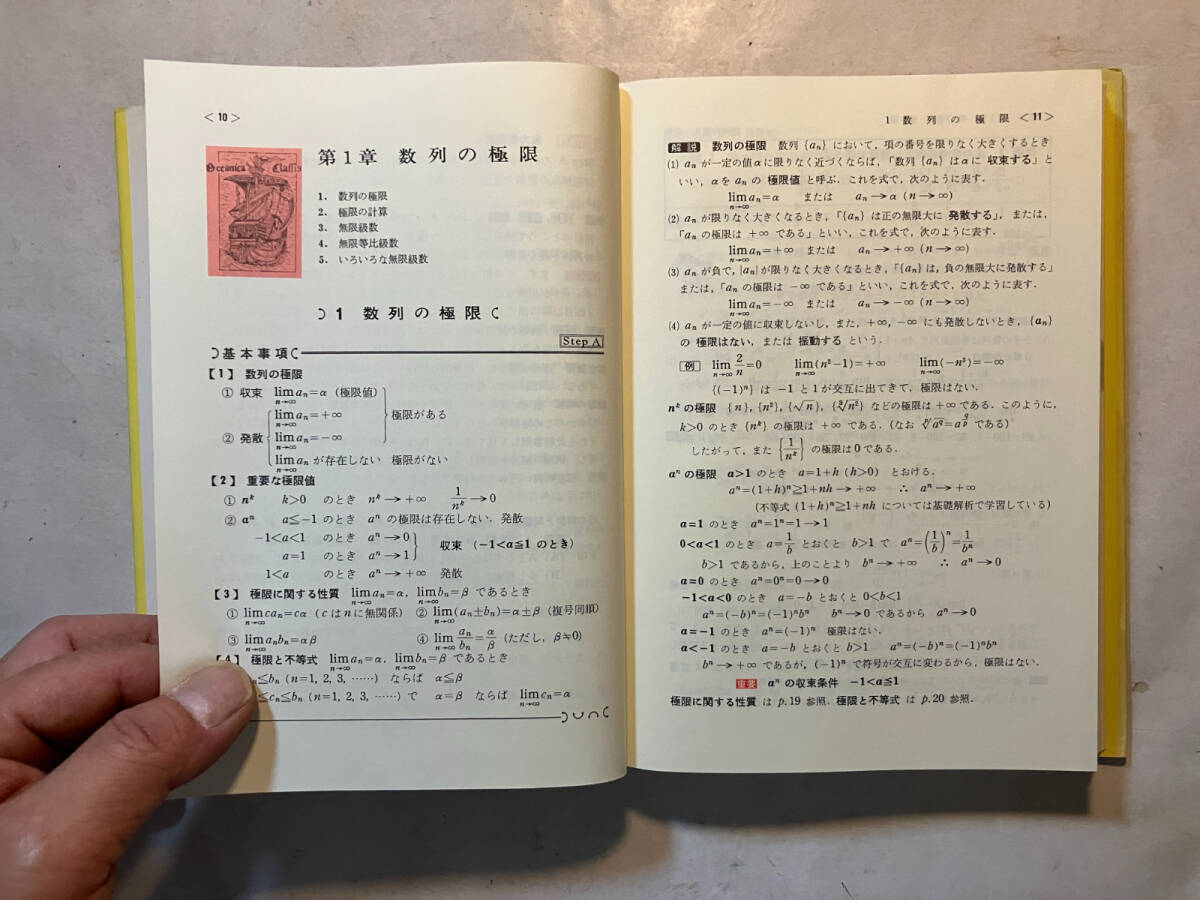 <10>
Oceanica Classis
第1章 数列の極限
1. 数列の極限
2. 極限の計算
3. 無限級数
4. 無限等比級数
5. いろいろな無限級数
1 数列の極限
Step A
基本事項
【1】 数列の極限
① 収束 lim_{n→∞} aₙ=α (極限値)
lim_{n→∞} aₙ=+∞
極限がある
② 発散 lim_{n→∞} aₙ=-∞
lim_{n→∞} aₙ が存在しない 極限がない
【2】 重要な極限値
① nᵏ k>0 のとき nᵏ→+∞ 1/nᵏ→0
② aⁿ a≦-1 のとき aⁿ の極限は存在しない. 発散
-1<a<1 のとき aⁿ→0
収束 (-1<a≦1 のとき)
a=1 のとき aⁿ→1
1<a のとき aⁿ→+∞ 発散
【3】 極限に関する性質 lim_{n→∞} aₙ=α, lim_{n→∞} bₙ=β であるとき
① lim_{n→∞} caₙ=cα (c は n に無関係) ② lim_{n→∞} (aₙ±bₙ)=α±β (複号同順)
③ lim_{n→∞} aₙbₙ=αβ ④ lim_{n→∞} aₙ/bₙ=α/β (ただし, β≒0)
【4】 極限と不等式 lim_{n→∞} aₙ=α, lim_{n→∞} bₙ=β であるとき
≦bₙ (n=1, 2, 3, ……) ならば α≦β
≦cₙ≦bₙ (n=1, 2, 3, ……) で α=β ならば lim_{n→∞} cₙ=α
1 数列の極限 <11>
解説 数列の極限 数列 {aₙ} において, 項の番号を限りなく大きくするとき
(1) aₙ が一定の値 α に限りなく近づくならば, 「数列 {aₙ} は α に 収束する」と
いい, α を aₙ の 極限値 と呼ぶ. これを式で, 次のように表す.
lim_{n→∞} aₙ=α または aₙ→α (n→∞)
(2) aₙ が限りなく大きくなるとき, 「{aₙ} は正の無限大に 発散する」, または,
「aₙ の極限は +∞ である」といい, これを式で, 次のように表す.
lim_{n→∞} aₙ=+∞ または aₙ→+∞ (n→∞)
(3) aₙ が負で, |aₙ| が限りなく大きくなるとき, 「{aₙ} は, 負の無限大に発散する」
または, 「aₙ の極限は -∞ である」といい, これを式で, 次のように表す.
lim_{n→∞} aₙ=-∞ または aₙ→-∞ (n→∞)
(4) aₙ が一定の値に収束しないし, また, +∞, -∞ にも発散しないとき, {aₙ}
の 極限はない, または 振動する という.
例 lim_{n→∞} 2/n=0 lim_{n→∞} (n²-1)=+∞ lim_{n→∞} (-n³)=-∞
{(-1)ⁿ} は -1 と 1 が交互に出てきて, 極限はない.
nᵏ の極限 {n}, {n²}, {√n}, {∛n²} などの極限は +∞ である. このように,
k>0 のとき {nᵏ} の極限は +∞ である. (なお ᵖ√a^q=a^{q/p} である)
したがって, また {1/nᵏ} の極限は 0 である.
aⁿ の極限 a>1 のとき a=1+h (h>0) とおける.
aⁿ=(1+h)ⁿ≧1+nh→+∞ ∴ aⁿ→+∞
(不等式 (1+h)ⁿ≧1+nh については基礎解析で学習している)
a=1 のとき aⁿ=1ⁿ=1→1
0<a<1 のとき a=1/b とおくと b>1 で aⁿ=(1/b)ⁿ=1/bⁿ
b>1 であるから, 上のことより bⁿ→+∞ ∴ aⁿ→0
a=0 のとき aⁿ=0ⁿ=0→0
-1<a<0 のとき a=-b とおくと 0<b<1
aⁿ=(-b)ⁿ=(-1)ⁿbⁿ bⁿ→0 であるから aⁿ→0
a=-1 のとき aⁿ=(-1)ⁿ 極限はない.
a<-1 のとき a=-b とおくと b>1 aⁿ=(-b)ⁿ=(-1)ⁿbⁿ
bⁿ→+∞ であるが, (-1)ⁿ で符号が交互に変わるから, 極限はない.
重要 aⁿ の収束条件 -1<a≦1
極限に関する性質 は p.19 参照. 極限と不等式 は p.20 参照.